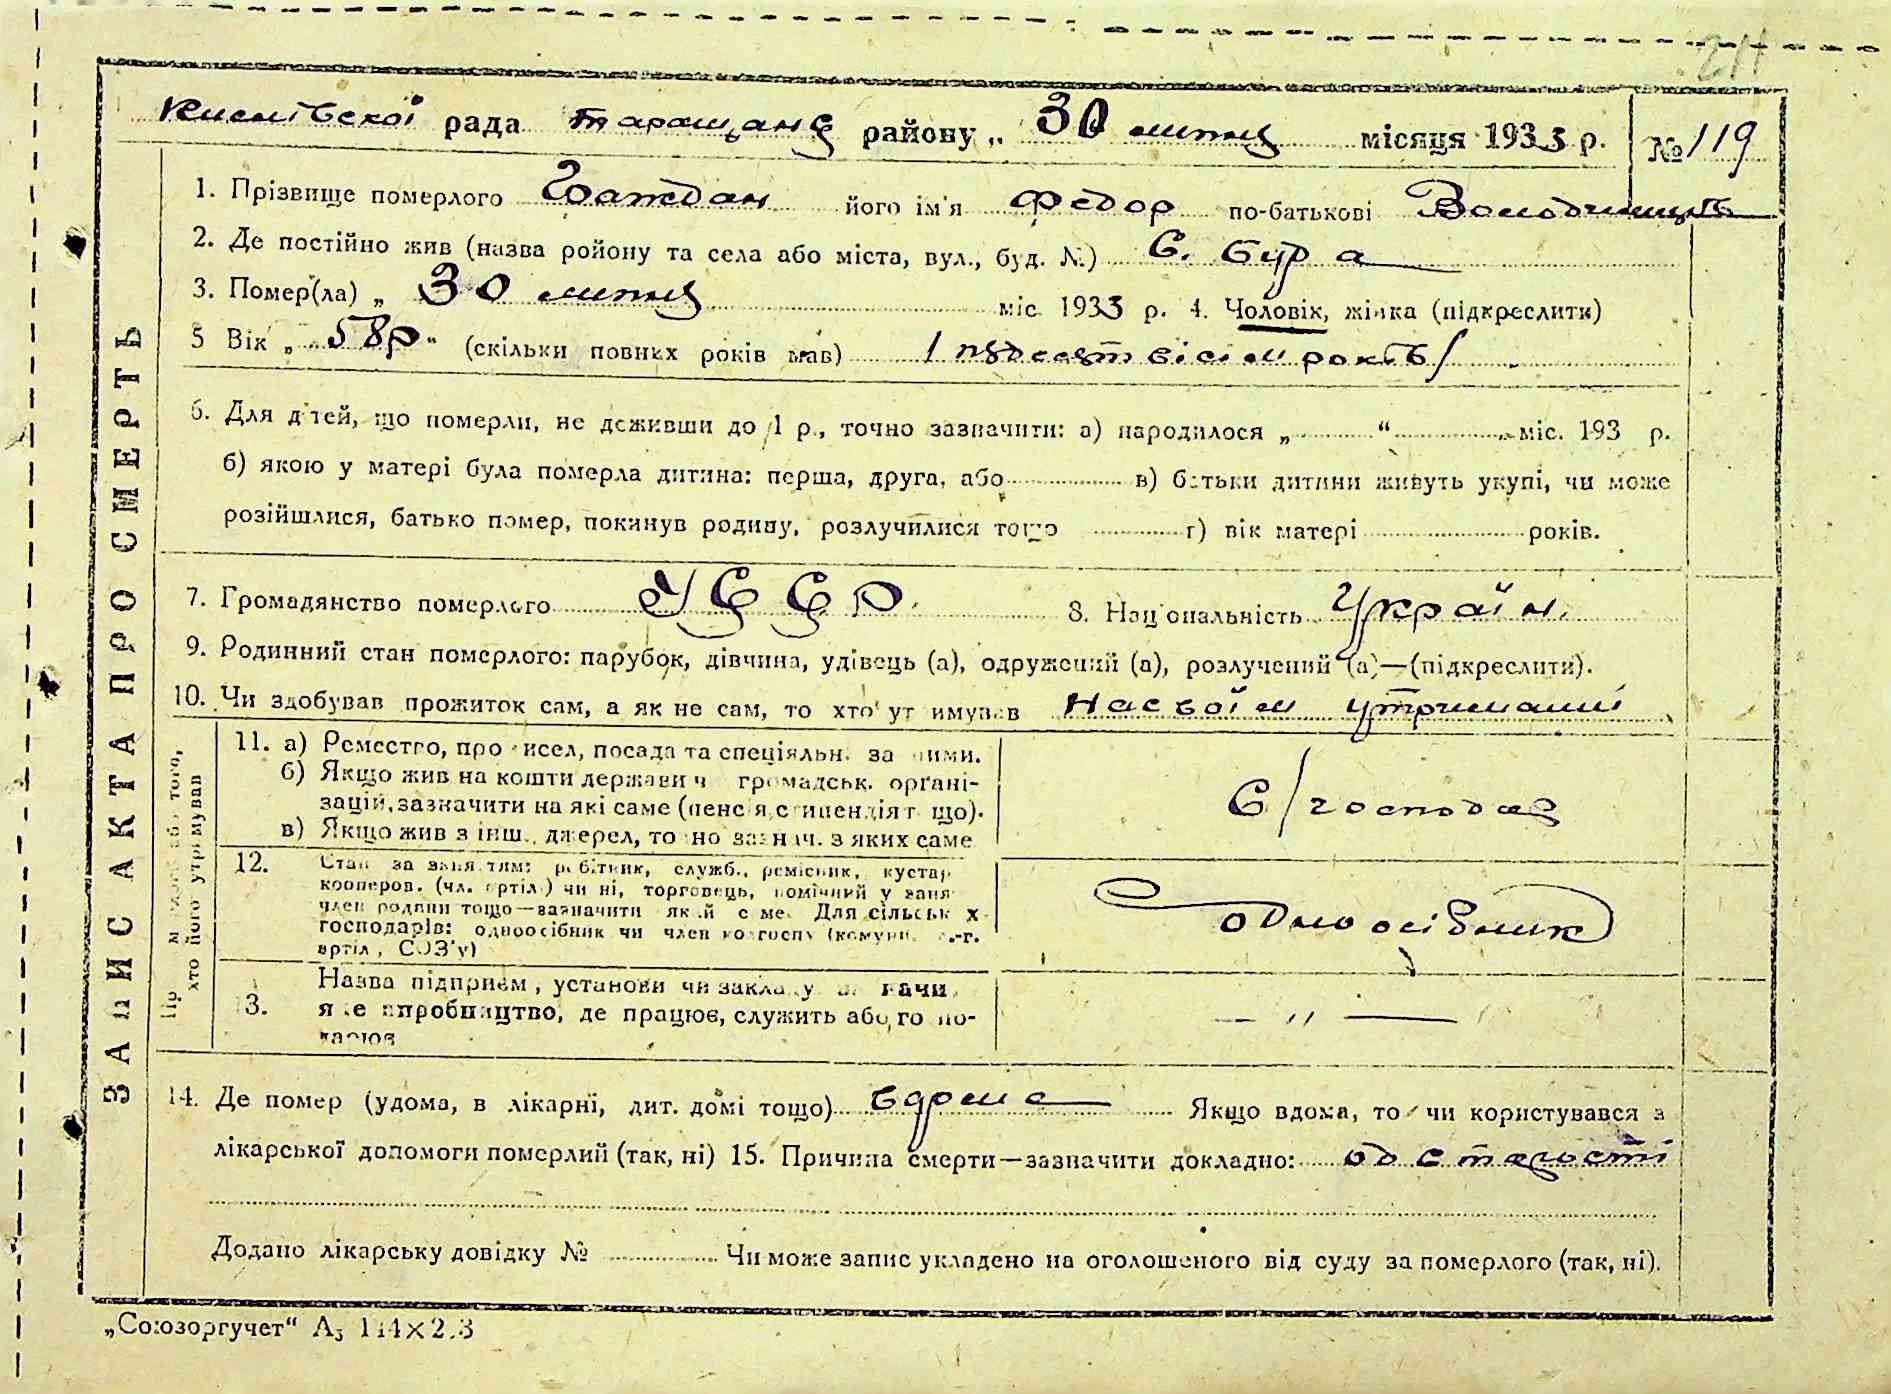 211
рада таращанс району „ 30 липня місяця 1933 р. № 119
ЗАПИС АКТА ПРО СМЕРТЬ
1. Прізвище померлого Баждан його ім'я Федор по-батькові
2. Де постійно жив (назва ройону та села або міста, вул., буд. №) С. Бура
3. Помер(ла) „ 30 липня міс 1933 р. 4. Чоловік, жінка (підкреслити)
5 Вік „ 58р “ (скільки повних років мав) / пядесят вісім років /
6. Для дітей, що померли, не доживши до 1 р., точно зазначити: а) народилося „ “ міс. 193 р.
б) якою у матері була померла дитина: перша, друга, або в) батьки дитини живуть укупі, чи може
розійшлися, батько помер, покинув родину, розлучилися тощо г) вік матері років.
7. Громадянство померлого УССР. 8. Національність Україн.
9. Родинний стан померлого: парубок, дівчина, удівець (а), одружений (а), розлучений (а)—(підкреслити).
10. Чи здобував прожиток сам, а як не сам, то хто утримував на своїм утриманні
хто його утримував
11. а) Ремество, промисел, посада та спеціяльн. за ними.
б) Якщо жив на кошти держави ч громадськ. органі-
зацій, зазначити на які саме (пенсія, стипендія т що).
в) Якщо жив з інш. джерел, то точно зазнач. з яких саме
С/господар
12. Стан за заняттям: робітник, служб., ремісник, кустар
кооперов. (чл. артіл.) чи ні, торговець, помічний у заня
член родини тощо—зазначити який саме. Для сільськ х
господарів: одноосібник чи член колгоспу (комуни, с.-г.
артіл, СОЗ'у)
одноосібник
13. Назва підприєм, установи чи закладу
яке виробництво, де працює, служить або го по-
— " —
14. Де помер (удома, в лікарні, дит. домі тощо) вдома Якщо вдома, то чи користувався з
лікарської допомоги померлий (так, ні) 15. Причина смерти—зазначити докладно: од старості
Додано лікарську довідку № Чи може запис укладено на оголошеного від суду за померлого (так, ні).
„Союзоргучет“ А₃ 114×2.3